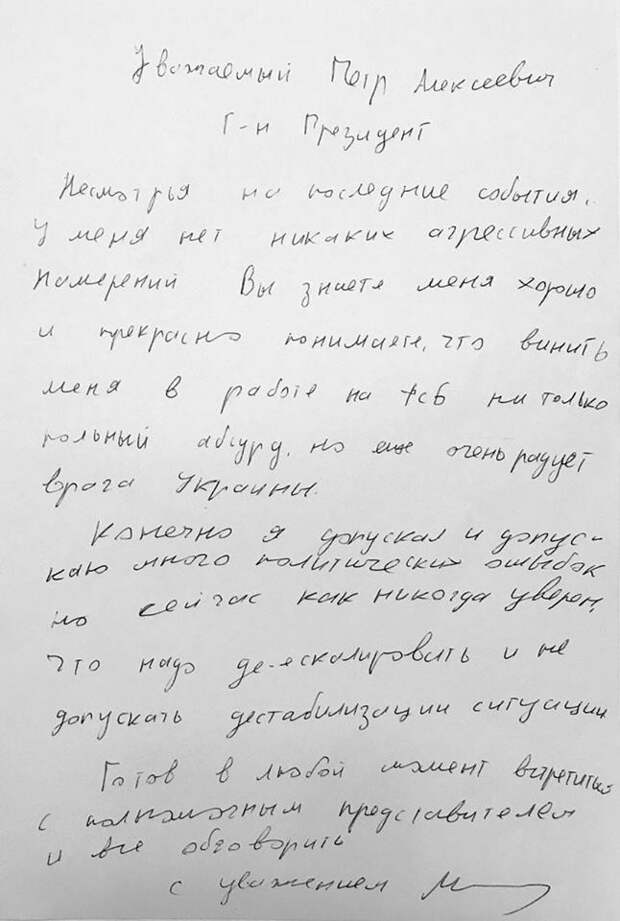 Уважаемый Петр Алексеевич
Г-н Президент
Несмотрья на последние события,
у меня нет никаких агрессивных
намерений Вы знаете меня хорошо
и прекрасно понимаете, что винить
меня в работе на фсб ни только
полный абсурд, но еще очень радует
врага Украины.
Конечно я допускал и допус-
каю много политических ошыбок
но сейчас как никогда уверен,
что надо де-ескалировать и не
допускать дестабилизации ситуации
Готов в любой момент встретиться
с полномочным представителем
и все обговорить
с уважением